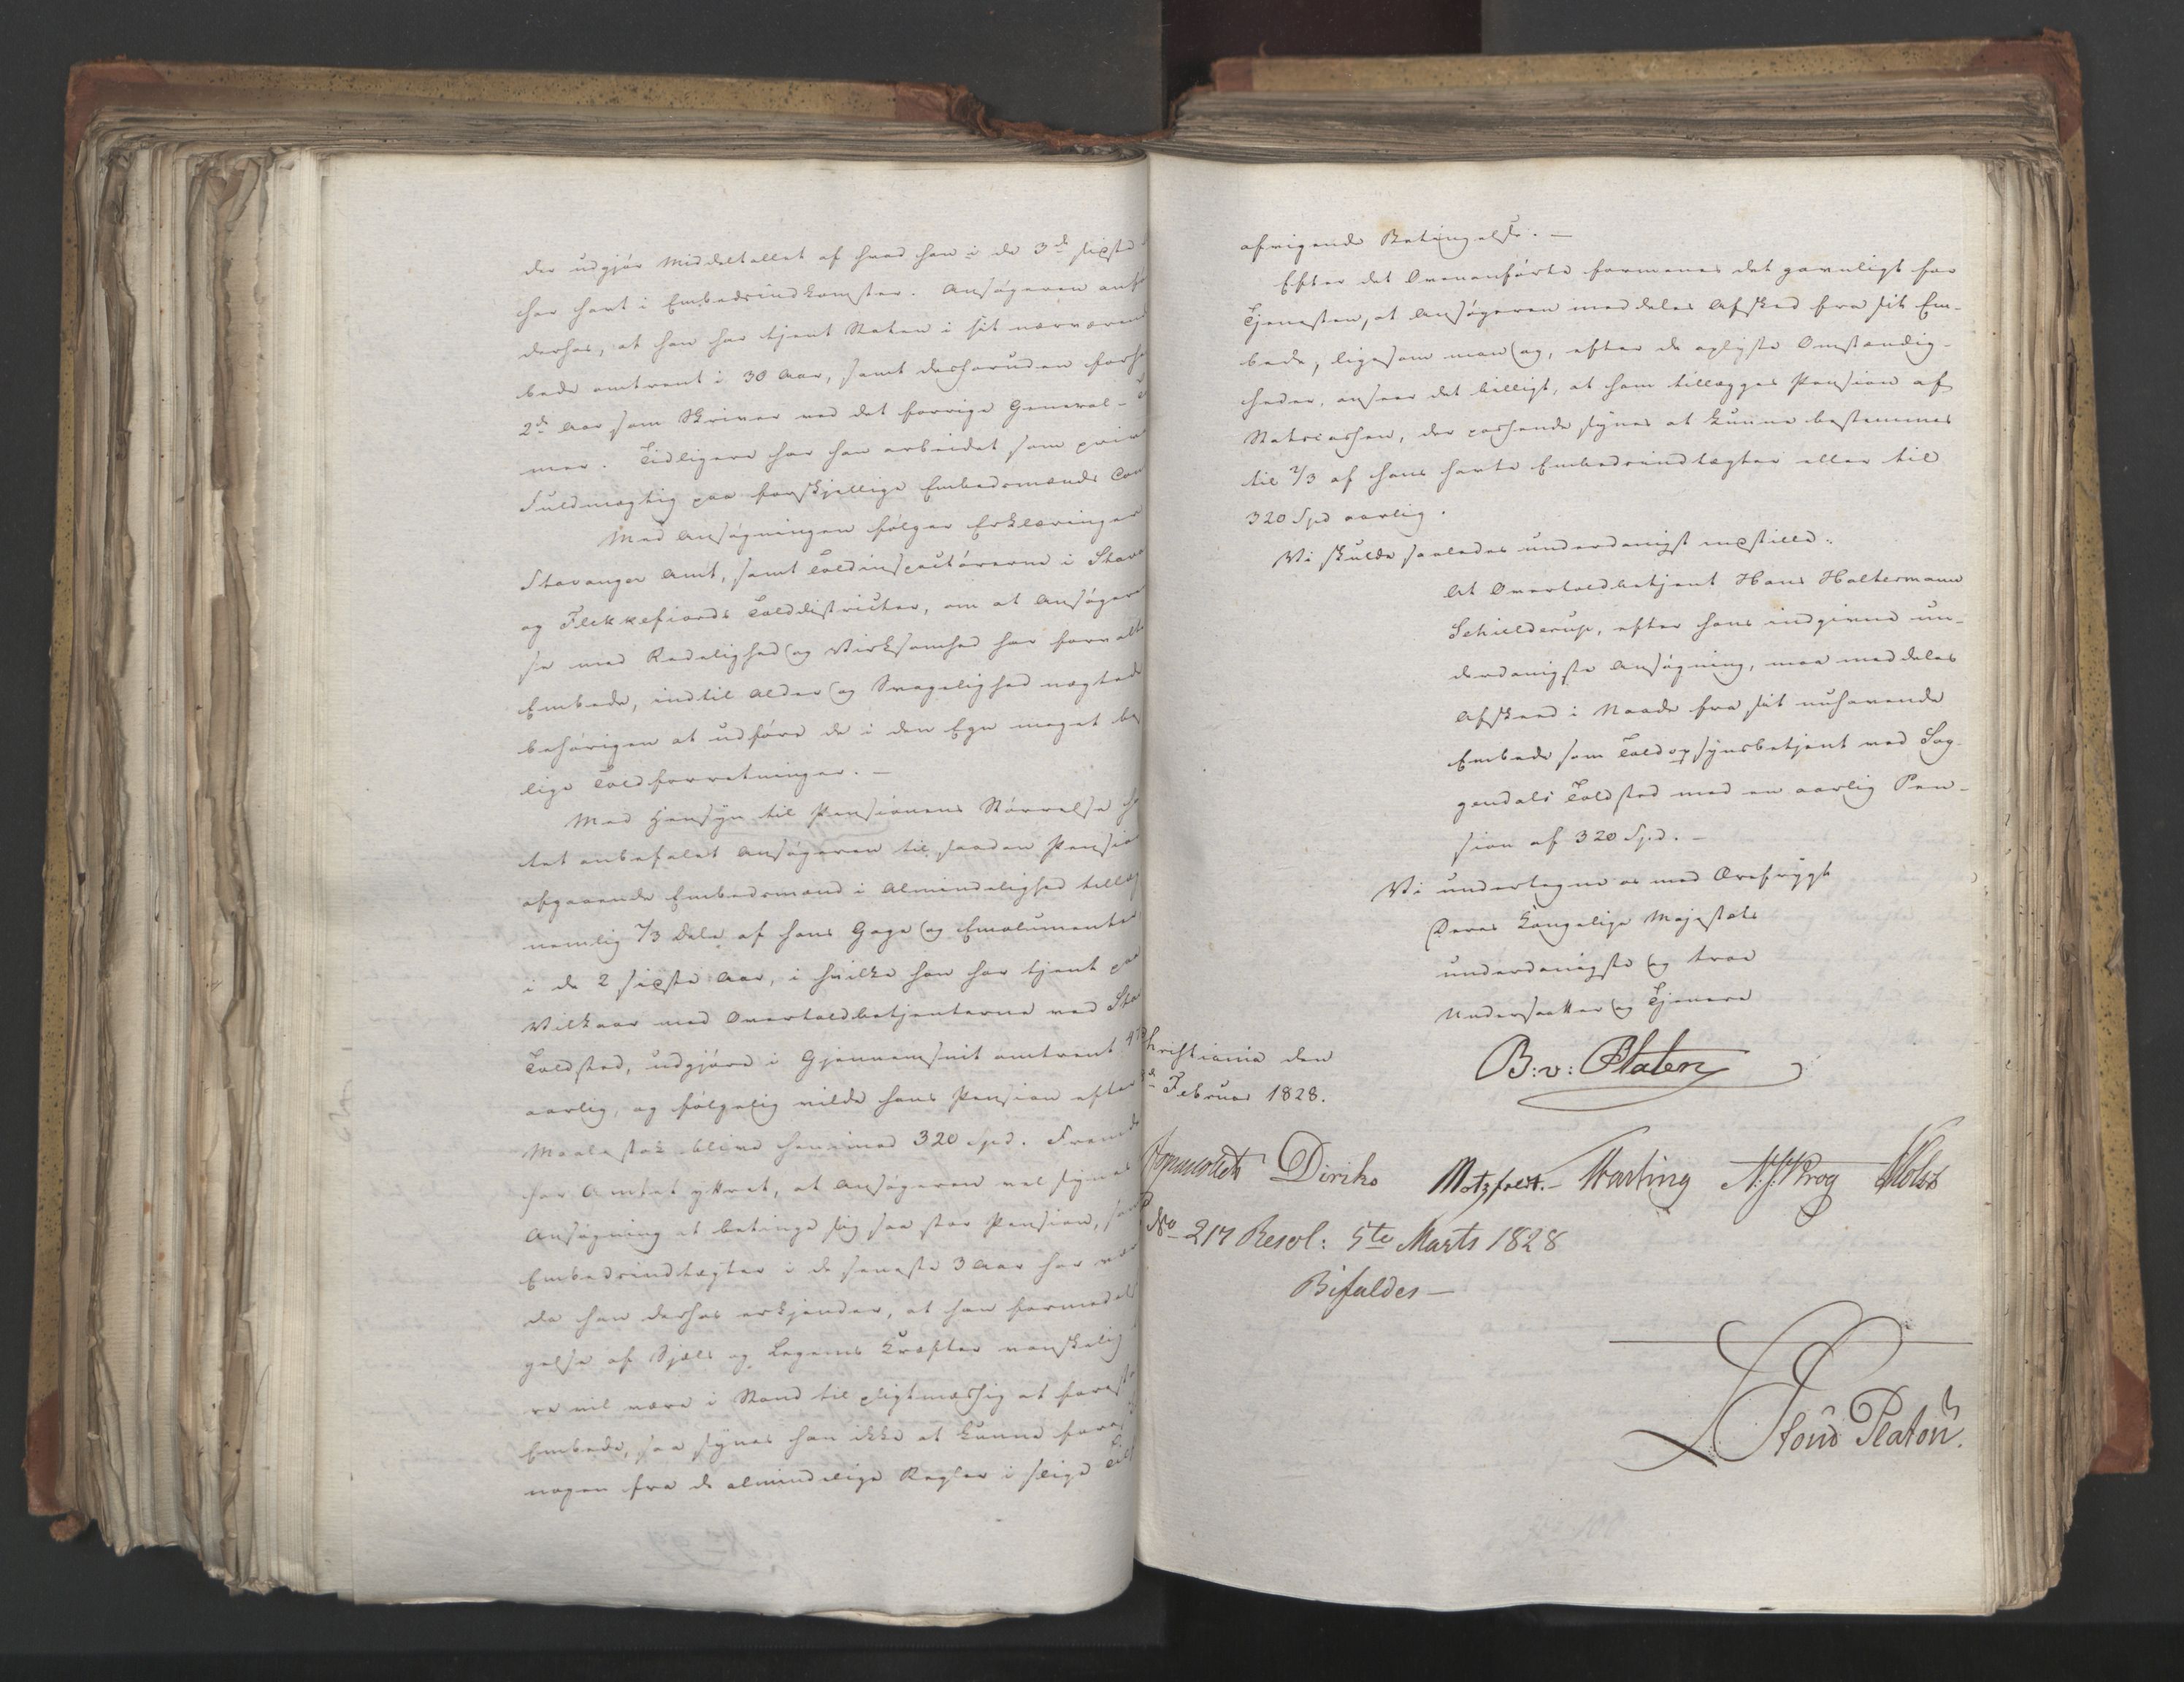 der udgjør Middeltallet af hvad han i de 3de sidste
har havt i Embedsindkomster. Ansøgeren anfø
derhos, at han har tjent Staten i sit nærværend
bede omtrent i 30 Aar, samt desforuden forhe
2de Aar som Skriver ved det forrige General-
mer. Tidligere har han arbeidet som priva
Fuldmægtig paa forskjellige Embedsmænds Con
Med Ansøgningen følger Erklæringer
Stavanger Amt, samt Toldinspecteurerne i Stava
og Flekkefiords Tolddistricter, om at Ansøgere
se med Redelighed og Virksomhed har forvalte
Embede, indtil Alder og Svagelighed nægtede
behørigen at udføre de i den Egn meget be
lige Toldforretninger. –
Med Hensyn til Pensionens Størrelse ha
tet anbefalet Ansøgeren til saadan Pension
afgaaende Embedsmænd i Almindelighed tillæg
nemlig 2/3 Dele af hans Gage og Emolumenter
i de 2 sidste Aar, i hvilke han har tjent paa
Vilkaar med Overtoldbetjenterne ved Sta
Toldsted, udgjøre i Gjennemsnit omtrent
aarlig, og følgelig vilde hans Pension efter
Maalestok blive henimod 320 Spd. Fremde
har Amtet yttret, at Ansøgeren vel synes
Ansøgning at betinge sig saa stor Pension, som
Embedsindtægter i de seneste 3 Aar har vær
da han derhos erkjender, at han formedelst
gelse af Sjæls og Legems Kræfter vanskelig
re vil være i Stand til pligtmæssig at forest
Embede, saa synes han ikke at kunne fore
nogen fra de almindelige Regler i slige Til
afvigende Betingelse. –
Efter det Ovenanførte formenes det gavnligt for
Tjenesten, at Ansøgeren meddeles Afsked fra sit Em-
bede, ligesom man og, efter de oplyste Omstændig-
heder, anseer det billigt, at ham tillægges Pension af
Statscassen, der passende synes at kunne bestemmes
til 2/3 af hans havte Embedsindtægter eller til
320 Spd aarlig.
Vi skulde saaledes underdanigst indstille:
At Overtoldbetjent Hans Holtermann
Schielderup, efter hans indgivne un-
derdanigste Ansøgning, maa meddeles
Afskeed i Naade fra sit nuhavende
Embede som Toldopsynsbetjent ved Sog-
gendals Toldsted med en aarlig Pen-
sion af 320 Spd. –
Vi undertegne os med Ærefrygt
Deres Kongelige Majestæts
underdanigste og troe
Undersaatter og Tjenere
hristiania den
Februar 1828.
B: v: Platen
Diriks Motzfeldt. – Fasting N. J. Krog Holst
No 217 Resol: 5te Marts 1828
Bifaldes –
Platou.